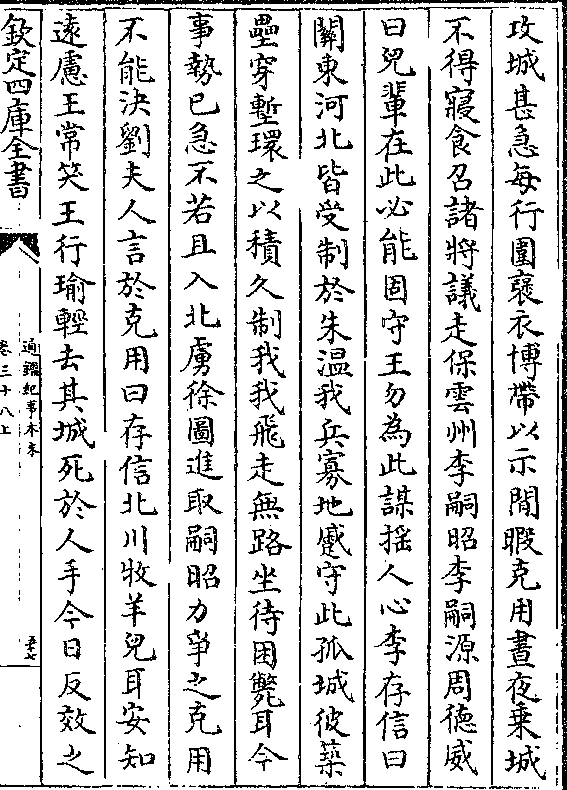 攻城甚急每行圍褒衣博帶以示閒暇克用晝夜乗城
不得寢食召諸將議走保雲州李嗣昭李嗣源周徳威
曰兒輩在此必能固守王勿為此謀揺人心李存信曰
關東河北皆受制於朱温我兵寡地蹙守此孤城彼築
壘穿塹環之以積久制我我飛走無路坐待困斃耳今
事勢已急不若且入北虜徐圖進取嗣昭力爭之克用
不能決劉夫人言於克用曰存信北川牧羊兒耳安知
遠慮王常笑王行瑜輕去其城死於人手今日反效之
欽定四庫全書
通鑑紀事本末
卷三十八上
五十七